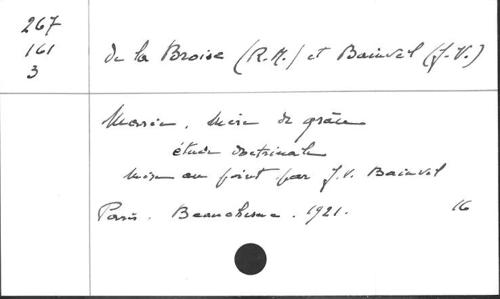 267
161
3
de la Broise (R.M.) et Bainvel (J.V.)
Marie, Mère de grâce
étude doctrinale
mise au point par J.V. Bainvel
Paris. Beauchesne. 1921. 16